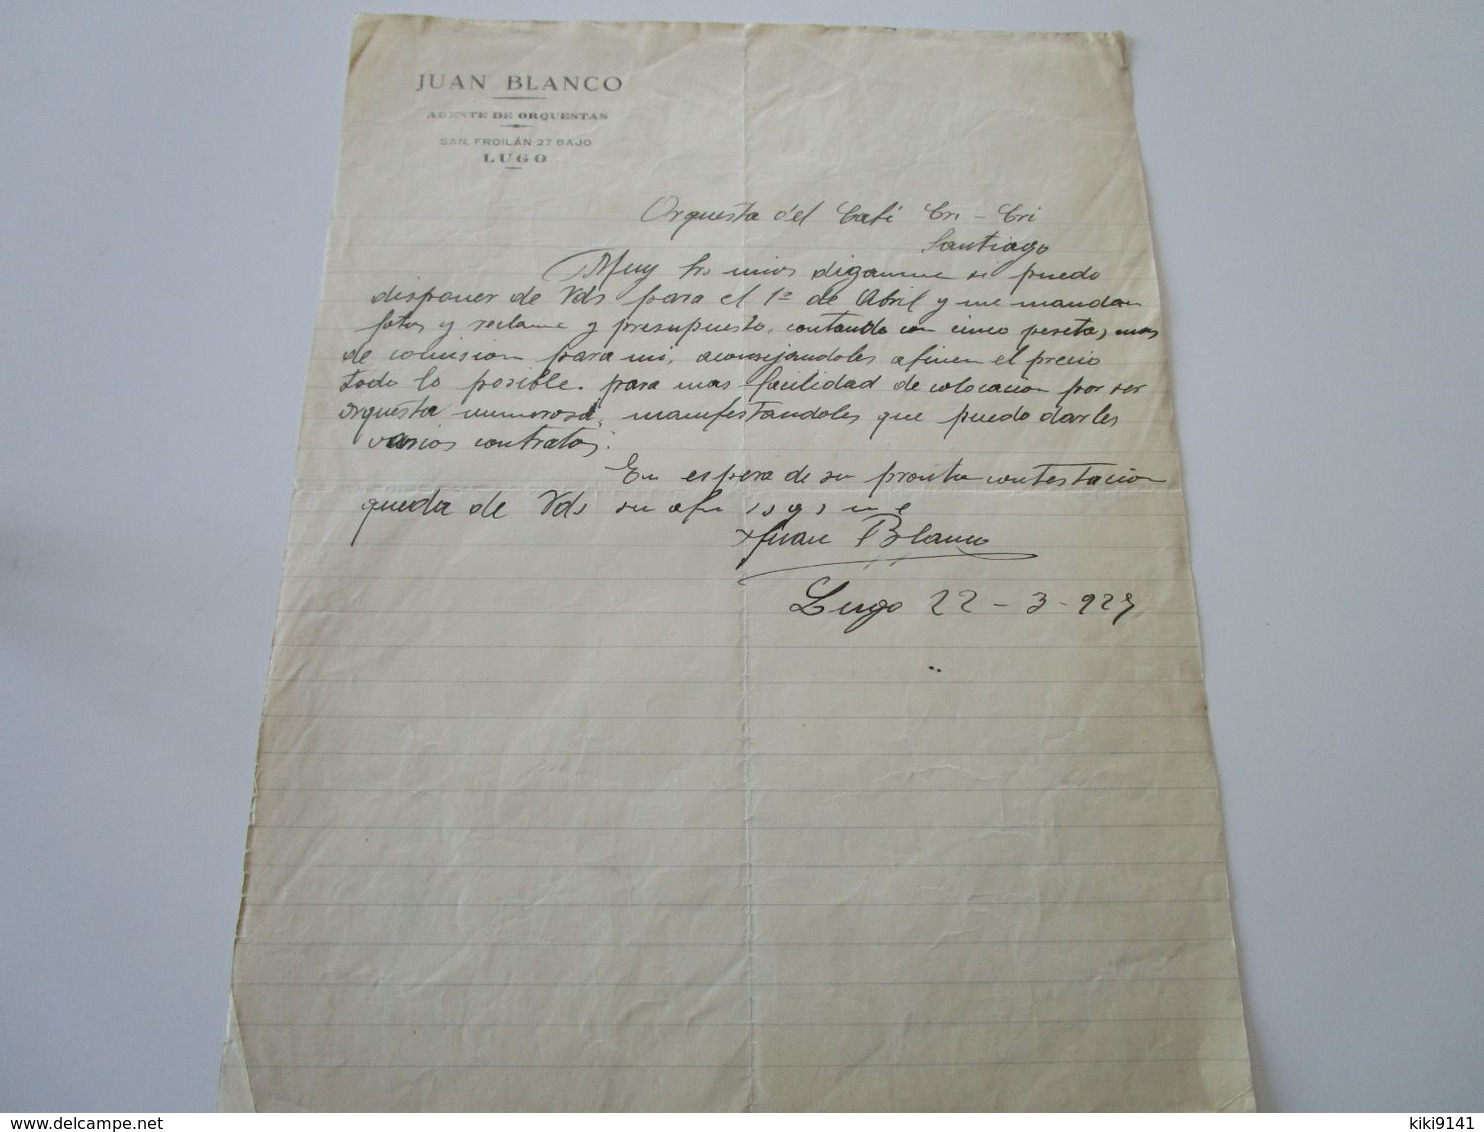 JUAN BLANCO
AGENTE DE ORQUESTAS
SAN FROILÁN 27 BAJO
LUGO
Orquesta del Café Cri-Cri
Santiago
Muy Srs mios diganme si puedo
disponer de Vds para el 1º de Abril y me mandan
fotos y reclame y presupuesto, contando con cinco pesetas, mas
de comision para mi, aconsejandoles afinen el precio
todo lo posible. para mas facilidad de colocacion por ser
orquesta numerosa, manifestandoles que puedo darles
varios contratos.
En espera de su pronta contestacion
queda de Vds su afm
Juan Blanco
Lugo 22-3-929
delcampe.net
kiki9141